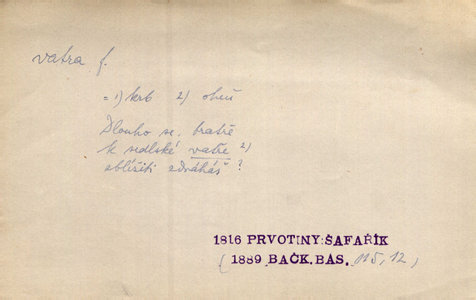 vatra f.
= 1) krb 2) oheň
Dlouho se, bratře
k sedlské vatře 2)
sblížiti zdráháš?
1816 PRVOTINY:ŠAFAŘÍK
( 1889 BAČK.BÁS. 115, 12)